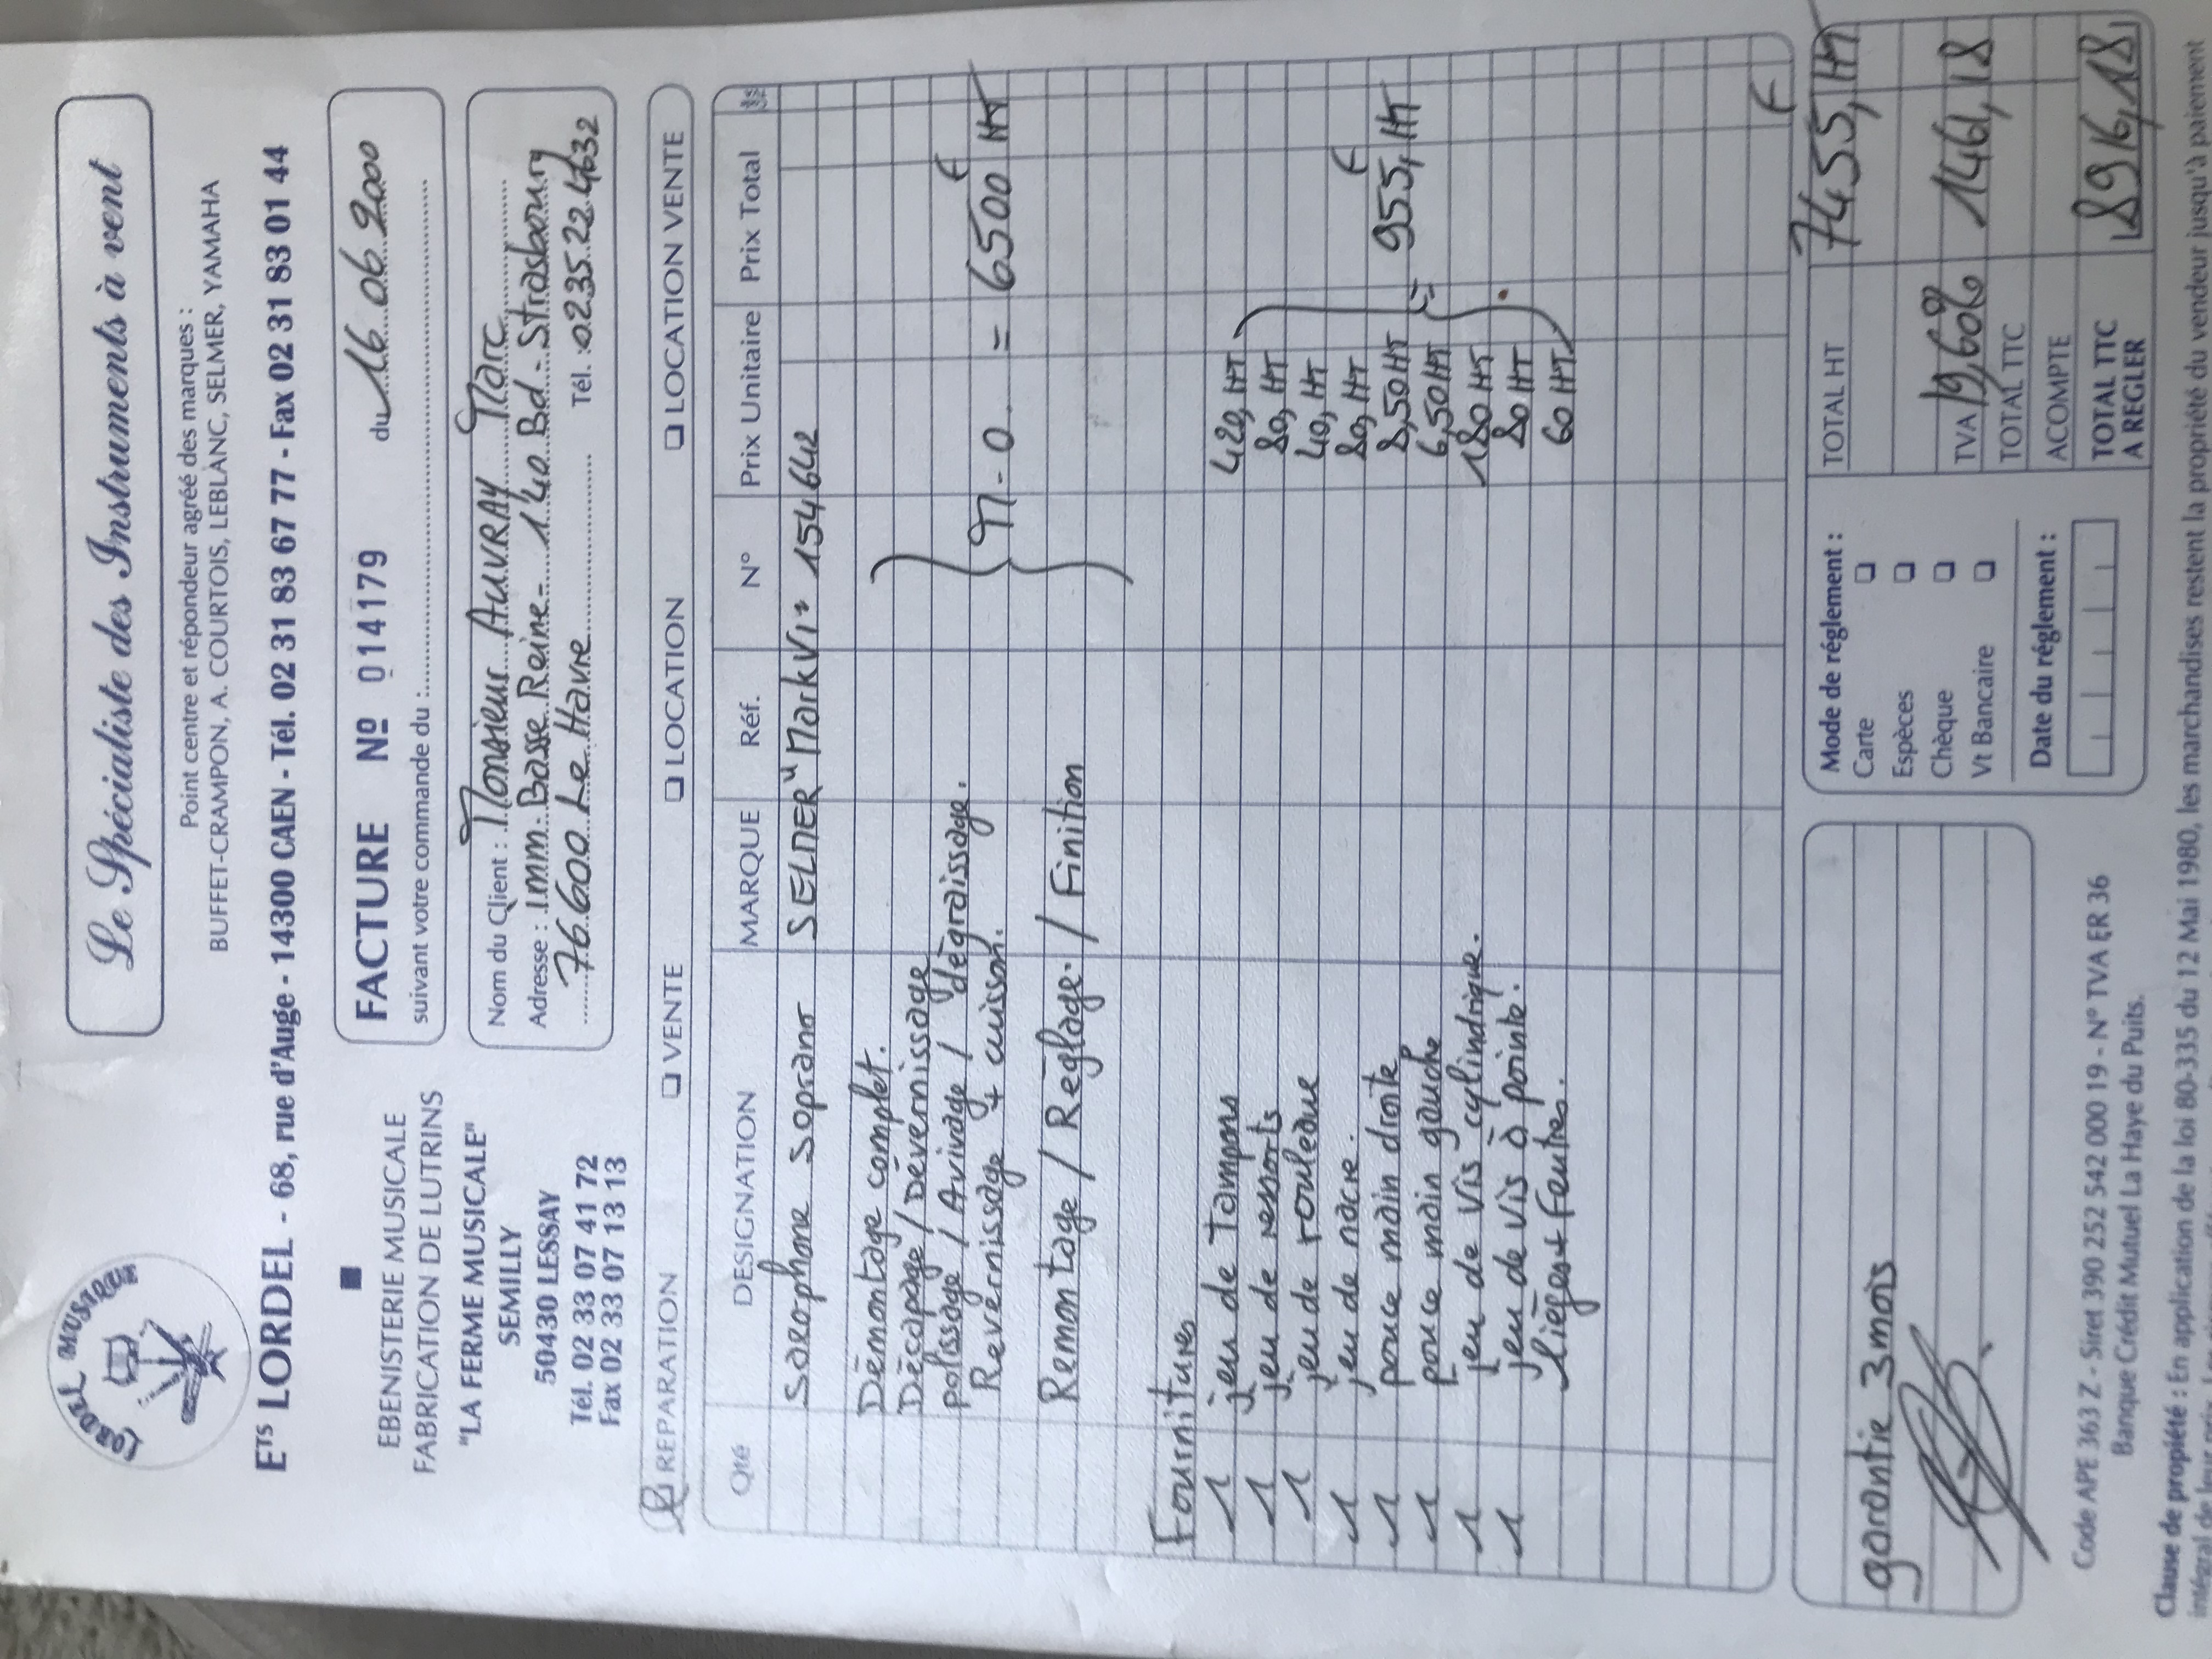 LORDEL MUSIQUE
Le Spécialiste des Instruments à vent
Point centre et répondeur agréé des marques :
BUFFET-CRAMPON, A. COURTOIS, LEBLANC, SELMER, YAMAHA
ETS LORDEL - 68, rue d'Auge - 14300 CAEN - Tél. 02 31 83 67 77 - Fax 02 31 83 01 44
EBENISTERIE MUSICALE
FABRICATION DE LUTRINS
"LA FERME MUSICALE"
SEMILLY
50430 LESSAY
Tél. 02 33 07 41 72
Fax 02 33 07 13 13
FACTURE Nº 014179 du 16.06.2000
suivant votre commande du :
Nom du Client : Monsieur AUVRAY Marc
Adresse : Imm. Basse Reine - 140 Bd - Strasbourg
76.600 Le Havre Tél. : 02.35.22.4632
REPARATION VENTE LOCATION LOCATION VENTE
Qté DESIGNATION MARQUE Réf. N° Prix Unitaire Prix Total
Saxophone Soprano SELMER "Mark VI" 154642
Démontage complet.
Décapage / Dévernissage
polissage / Avivage / dégraissage.
Revernissage + cuisson. M-O = 6500 F HT
Remontage / Réglage. / Finition
Fournitures
1 jeu de Tampons 420, HT
1 jeu de ressorts 80, HT
1 jeu de rouleaux 40, HT
1 jeu de nacre. 80, HT
1 pouce main droite 8,50 HT = 955, F HT
1 pouce main gauche 6,50 HT
1 jeu de vis cylindrique. 180 HT
1 jeu de vis à pointe. 80 HT
lièges + Feutres. 60 HT
garantie 3 mois
Mode de réglement :
Carte
Espèces
Chèque
Vt Bancaire
Date du réglement :
TOTAL HT 7455, F HT
TVA 19,60% 1461,18
TOTAL TTC
ACOMPTE
TOTAL TTC A REGLER 8916,18
Code APE 363 Z - Siret 390 252 542 000 19 - N° TVA ER 36
Banque Crédit Mutuel La Haye du Puits.
Clause de propriété : En application de la loi 80-335 du 12 Mai 1980, les marchandises restent la propriété du vendeur jusqu'à paiement
intégral de leur